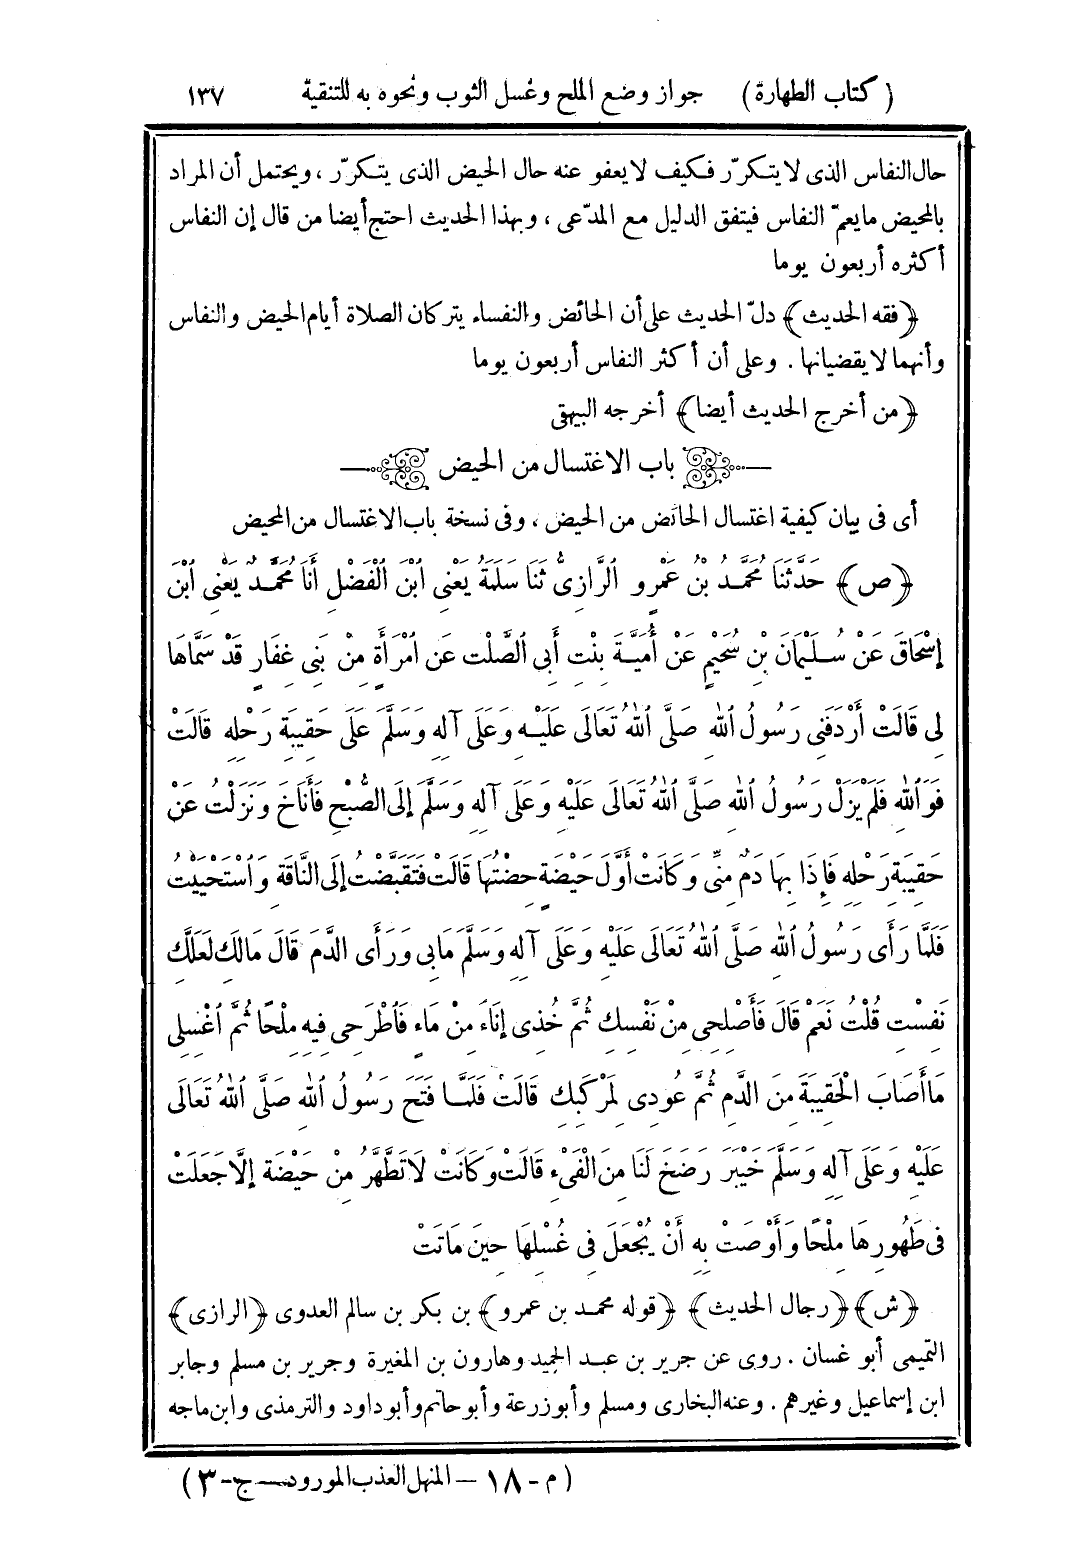 (كتاب الطهارة) جواز وضع الملح وغسل الثوب ونحوه به للتنقية ١٣٧
حال النفاس الذى لا يتكرّر فكيف لا يعفو عنه حال الحيض الذى يتكرّر ، ويحتمل أن المراد
بالمحيض مايعمّ النفاس فيتفق الدليل مع المدّعى ، وبهذا الحديث احتج أيضا من قال إن النفاس
أكثره أربعون يوما
﴿فقه الحديث﴾ دلّ الحديث على أن الحائض والنفساء يتركان الصلاة أيام الحيض والنفاس
وأنهما لا يقضيانها . وعلى أن أكثر النفاس أربعون يوما
﴿من أخرج الحديث أيضا﴾ أخرجه البيهقى
باب الاغتسال من الحيض
أى فى بيان كيفية اغتسال الحائض من الحيض ، وفى نسخة باب الاغتسال من المحيض
﴿ص﴾ حَدَّثَنَا مُحَمَّدُ بْنُ عَمْرٍو ٱلرَّازِىُّ ثَنَا سَلَمَةُ يَعْنِى ٱبْنَ ٱلْفَضْلِ أَنَا مُحَمَّدٌ يَعْنِى ٱبْنَ
إِسْحَاقَ عَنْ سُلَيْمَانَ بْنِ سُحَيْمٍ عَنْ أُمَيَّةَ بِنْتِ أَبِى ٱلصَّلْتِ عَنِ ٱمْرَأَةٍ مِنْ بَنِى غِفَارٍ قَدْ سَمَّاهَا
لِى قَالَتْ أَرْدَفَنِى رَسُولُ ٱللهِ صَلَّى ٱللهُ تَعَالَى عَلَيْهِ وَعَلَى آلِهِ وَسَلَّمَ عَلَى حَقِيبَةِ رَحْلِهِ قَالَتْ
فَوَٱللهِ فَلَمْ يَزَلْ رَسُولُ ٱللهِ صَلَّى ٱللهُ تَعَالَى عَلَيْهِ وَعَلَى آلِهِ وَسَلَّمَ إِلَى الصُّبْحِ فَأَنَاخَ وَنَزَلْتُ عَنْ
حَقِيبَةِ رَحْلِهِ فَإِذَا بِهَا دَمٌ مِنِّى وَكَانَتْ أَوَّلَ حَيْضَةٍ حِضْتُهَا قَالَتْ فَتَقَبَّضْتُ إِلَى النَّاقَةِ وَٱسْتَحْيَيْتُ
فَلَمَّا رَأَى رَسُولُ ٱللهِ صَلَّى ٱللهُ تَعَالَى عَلَيْهِ وَعَلَى آلِهِ وَسَلَّمَ مَابِى وَرَأَى الدَّمَ قَالَ مَالَكِ لَعَلَّكِ
نَفِسْتِ قُلْتُ نَعَمْ قَالَ فَأَصْلِحِى مِنْ نَفْسِكِ ثُمَّ خُذِى إِنَاءً مِنْ مَاءٍ فَٱطْرَحِى فِيهِ مِلْحًا ثُمَّ ٱغْسِلِى
مَا أَصَابَ الْحَقِيبَةَ مِنَ الدَّمِ ثُمَّ عُودِى لِمَرْكَبِكِ قَالَتْ فَلَمَّا فَتَحَ رَسُولُ ٱللهِ صَلَّى ٱللهُ تَعَالَى
عَلَيْهِ وَعَلَى آلِهِ وَسَلَّمَ خَيْبَرَ رَضَخَ لَنَا مِنَ الْفَىْءِ قَالَتْ وَكَانَتْ لَا تَطَّهَّرُ مِنْ حَيْضَةٍ إِلَّا جَعَلَتْ
فِى طَهُورِهَا مِلْحًا وَأَوْصَتْ بِهِ أَنْ يُجْعَلَ فِى غُسْلِهَا حِينَ مَاتَتْ
﴿ش﴾ ﴿رجال الحديث﴾ ﴿قوله محمد بن عمرو﴾ بن بكر بن سالم العدوى ﴿الرازى﴾
التميمى أبو غسان . روى عن جرير بن عبد الحميد وهارون بن المغيرة وجرير بن مسلم وجابر
ابن إسماعيل وغيرهم . وعنه البخارى ومسلم وأبوزرعة وأبوحاتم وأبوداود والترمذى وابن ماجه
(م - ١٨ - المنهل العذب المورود - ج - ٣)